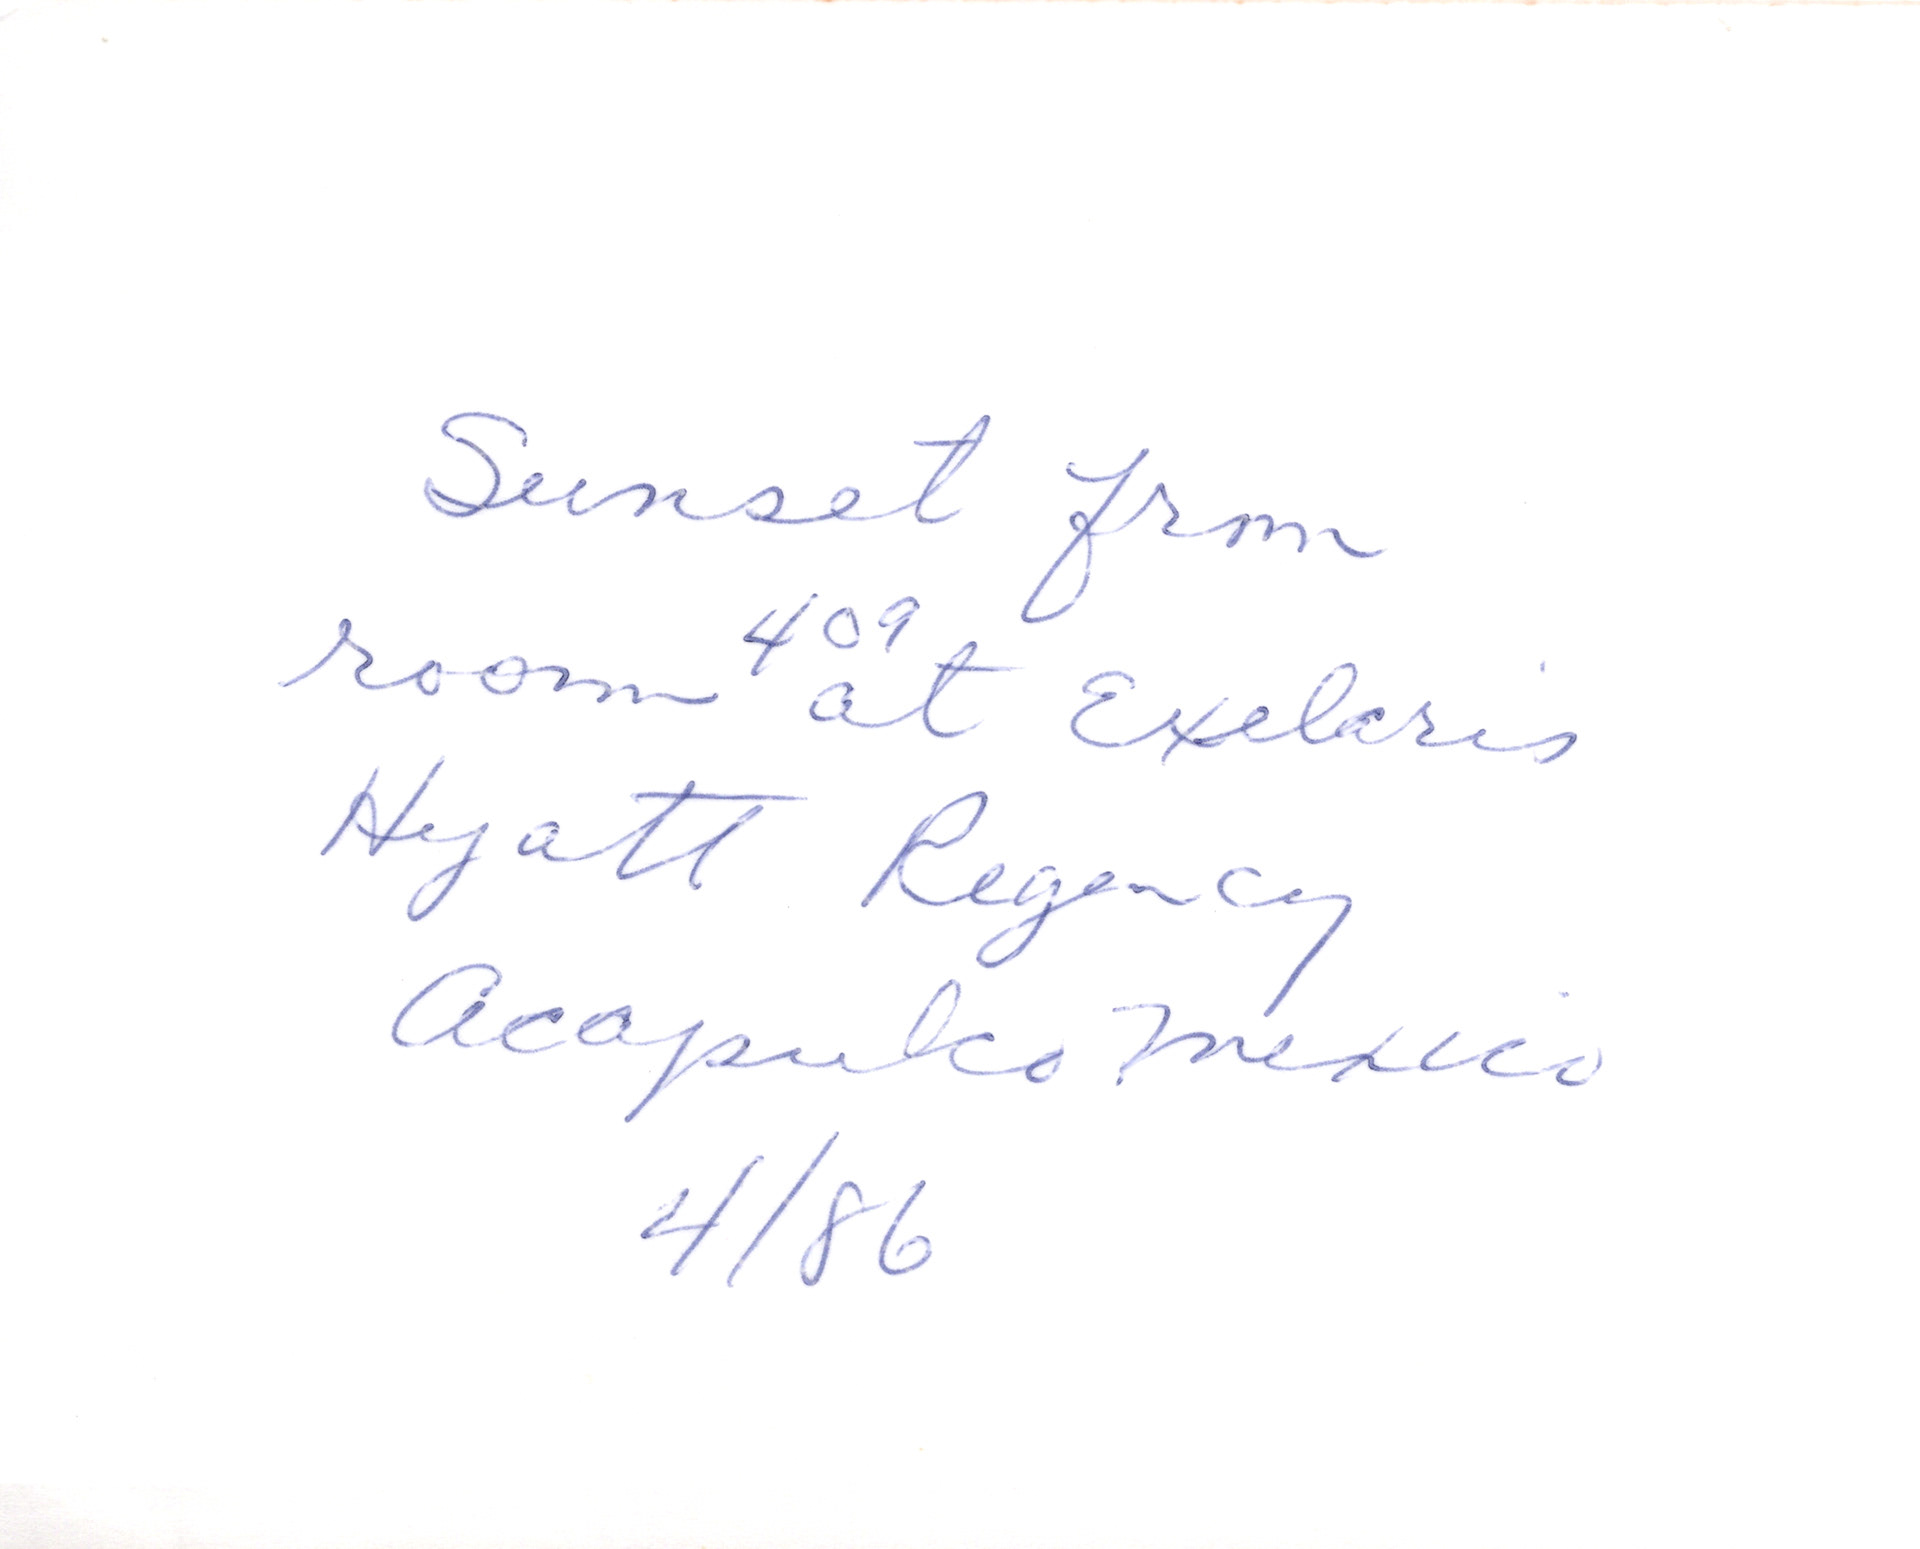 Sunset from
room 409 at Exelaris
Hyatt Regency
Acapulco Mexico
4/86